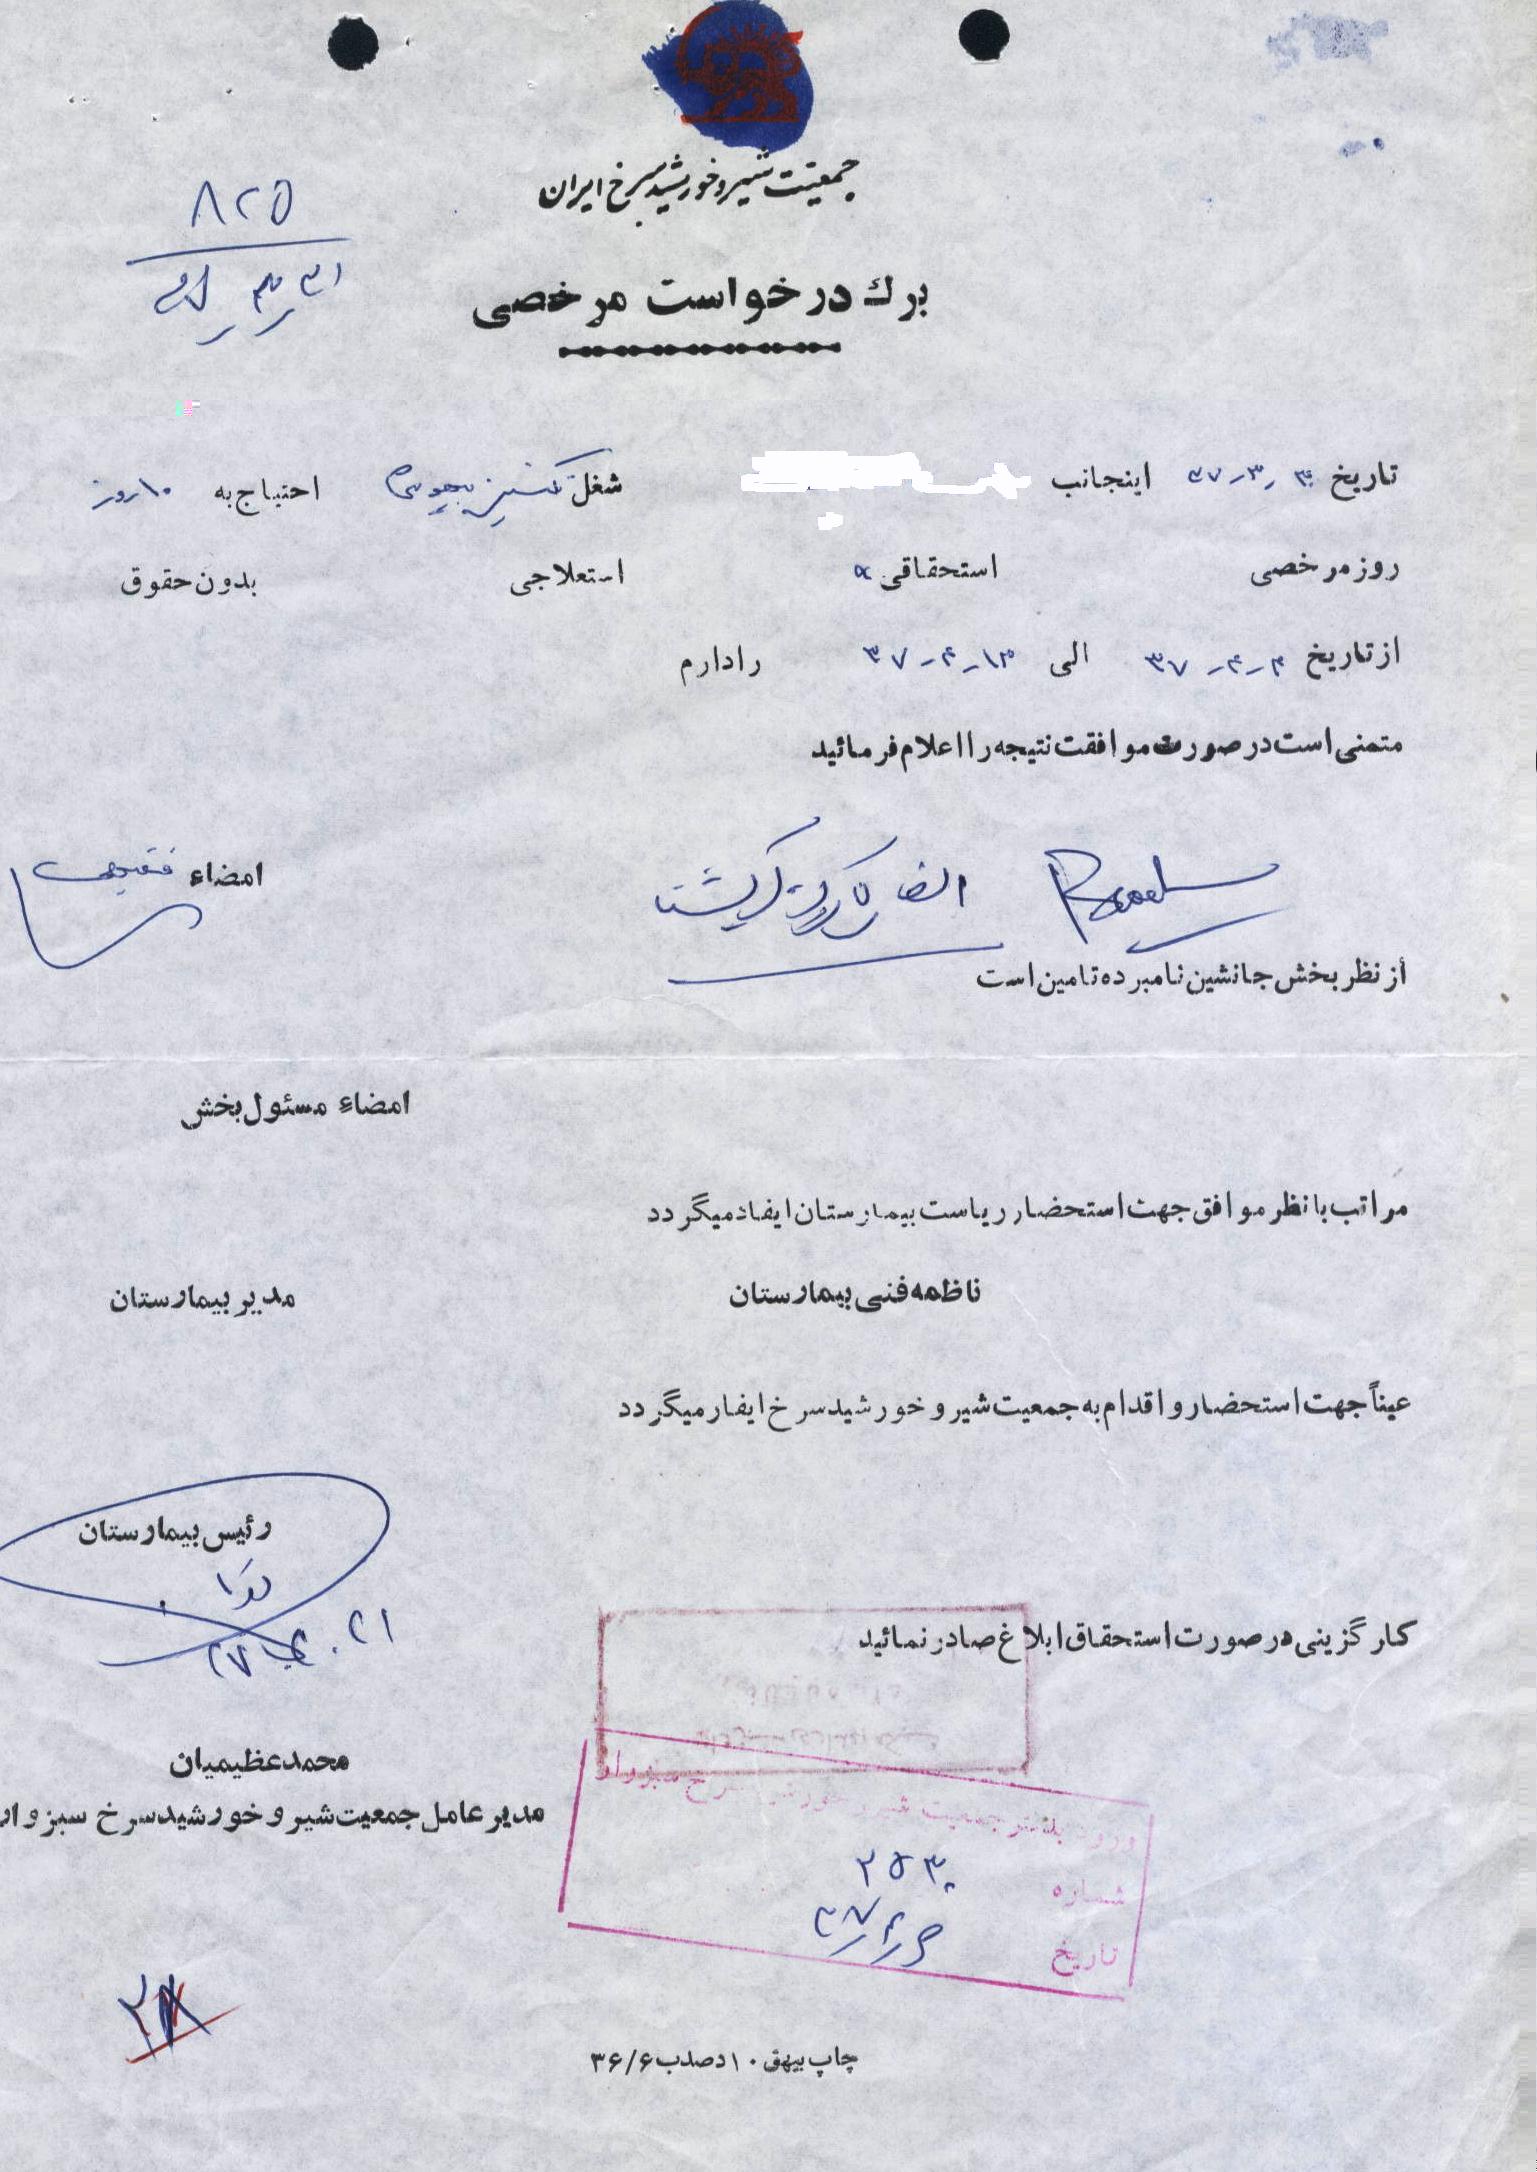 جمعیت شیر و خورشید سرخ ایران
۸۲۵
برك درخواست مرخصی
تاریخ ۳۰-۳-۳۷ اینجانب شغل احتیاج به ۱۰ روز
روز مرخصی استحقاقی استعلاجی بدون حقوق
از تاریخ ۳-۴-۳۷ الی ۱۳-۴-۳۷ را دارم
متمنی است در صورت موافقت نتیجه را اعلام فرمائید
امضاء
از نظر بخش جانشین نامبرده تامین است
امضاء مسئول بخش
مراتب با نظر موافق جهت استحضار ریاست بیمارستان ایفاد میگردد
ناظمه فنی بیمارستان مدیر بیمارستان
عیناً جهت استحضار و اقدام به جمعیت شیر و خورشید سرخ ایفار میگردد
رئیس بیمارستان
کارگزینی در صورت استحقاق ابلاغ صادر نمائید
محمد عظیمیان
مدیر عامل جمعیت شیر و خورشید سرخ سبزوار
ورود بدفتر جمعیت شیر و خورشید سرخ سبزوار
شماره ۲۵۳۰
تاریخ
۲۸
چاپ بیهق ۱۰ دصدب ۳۶/۶